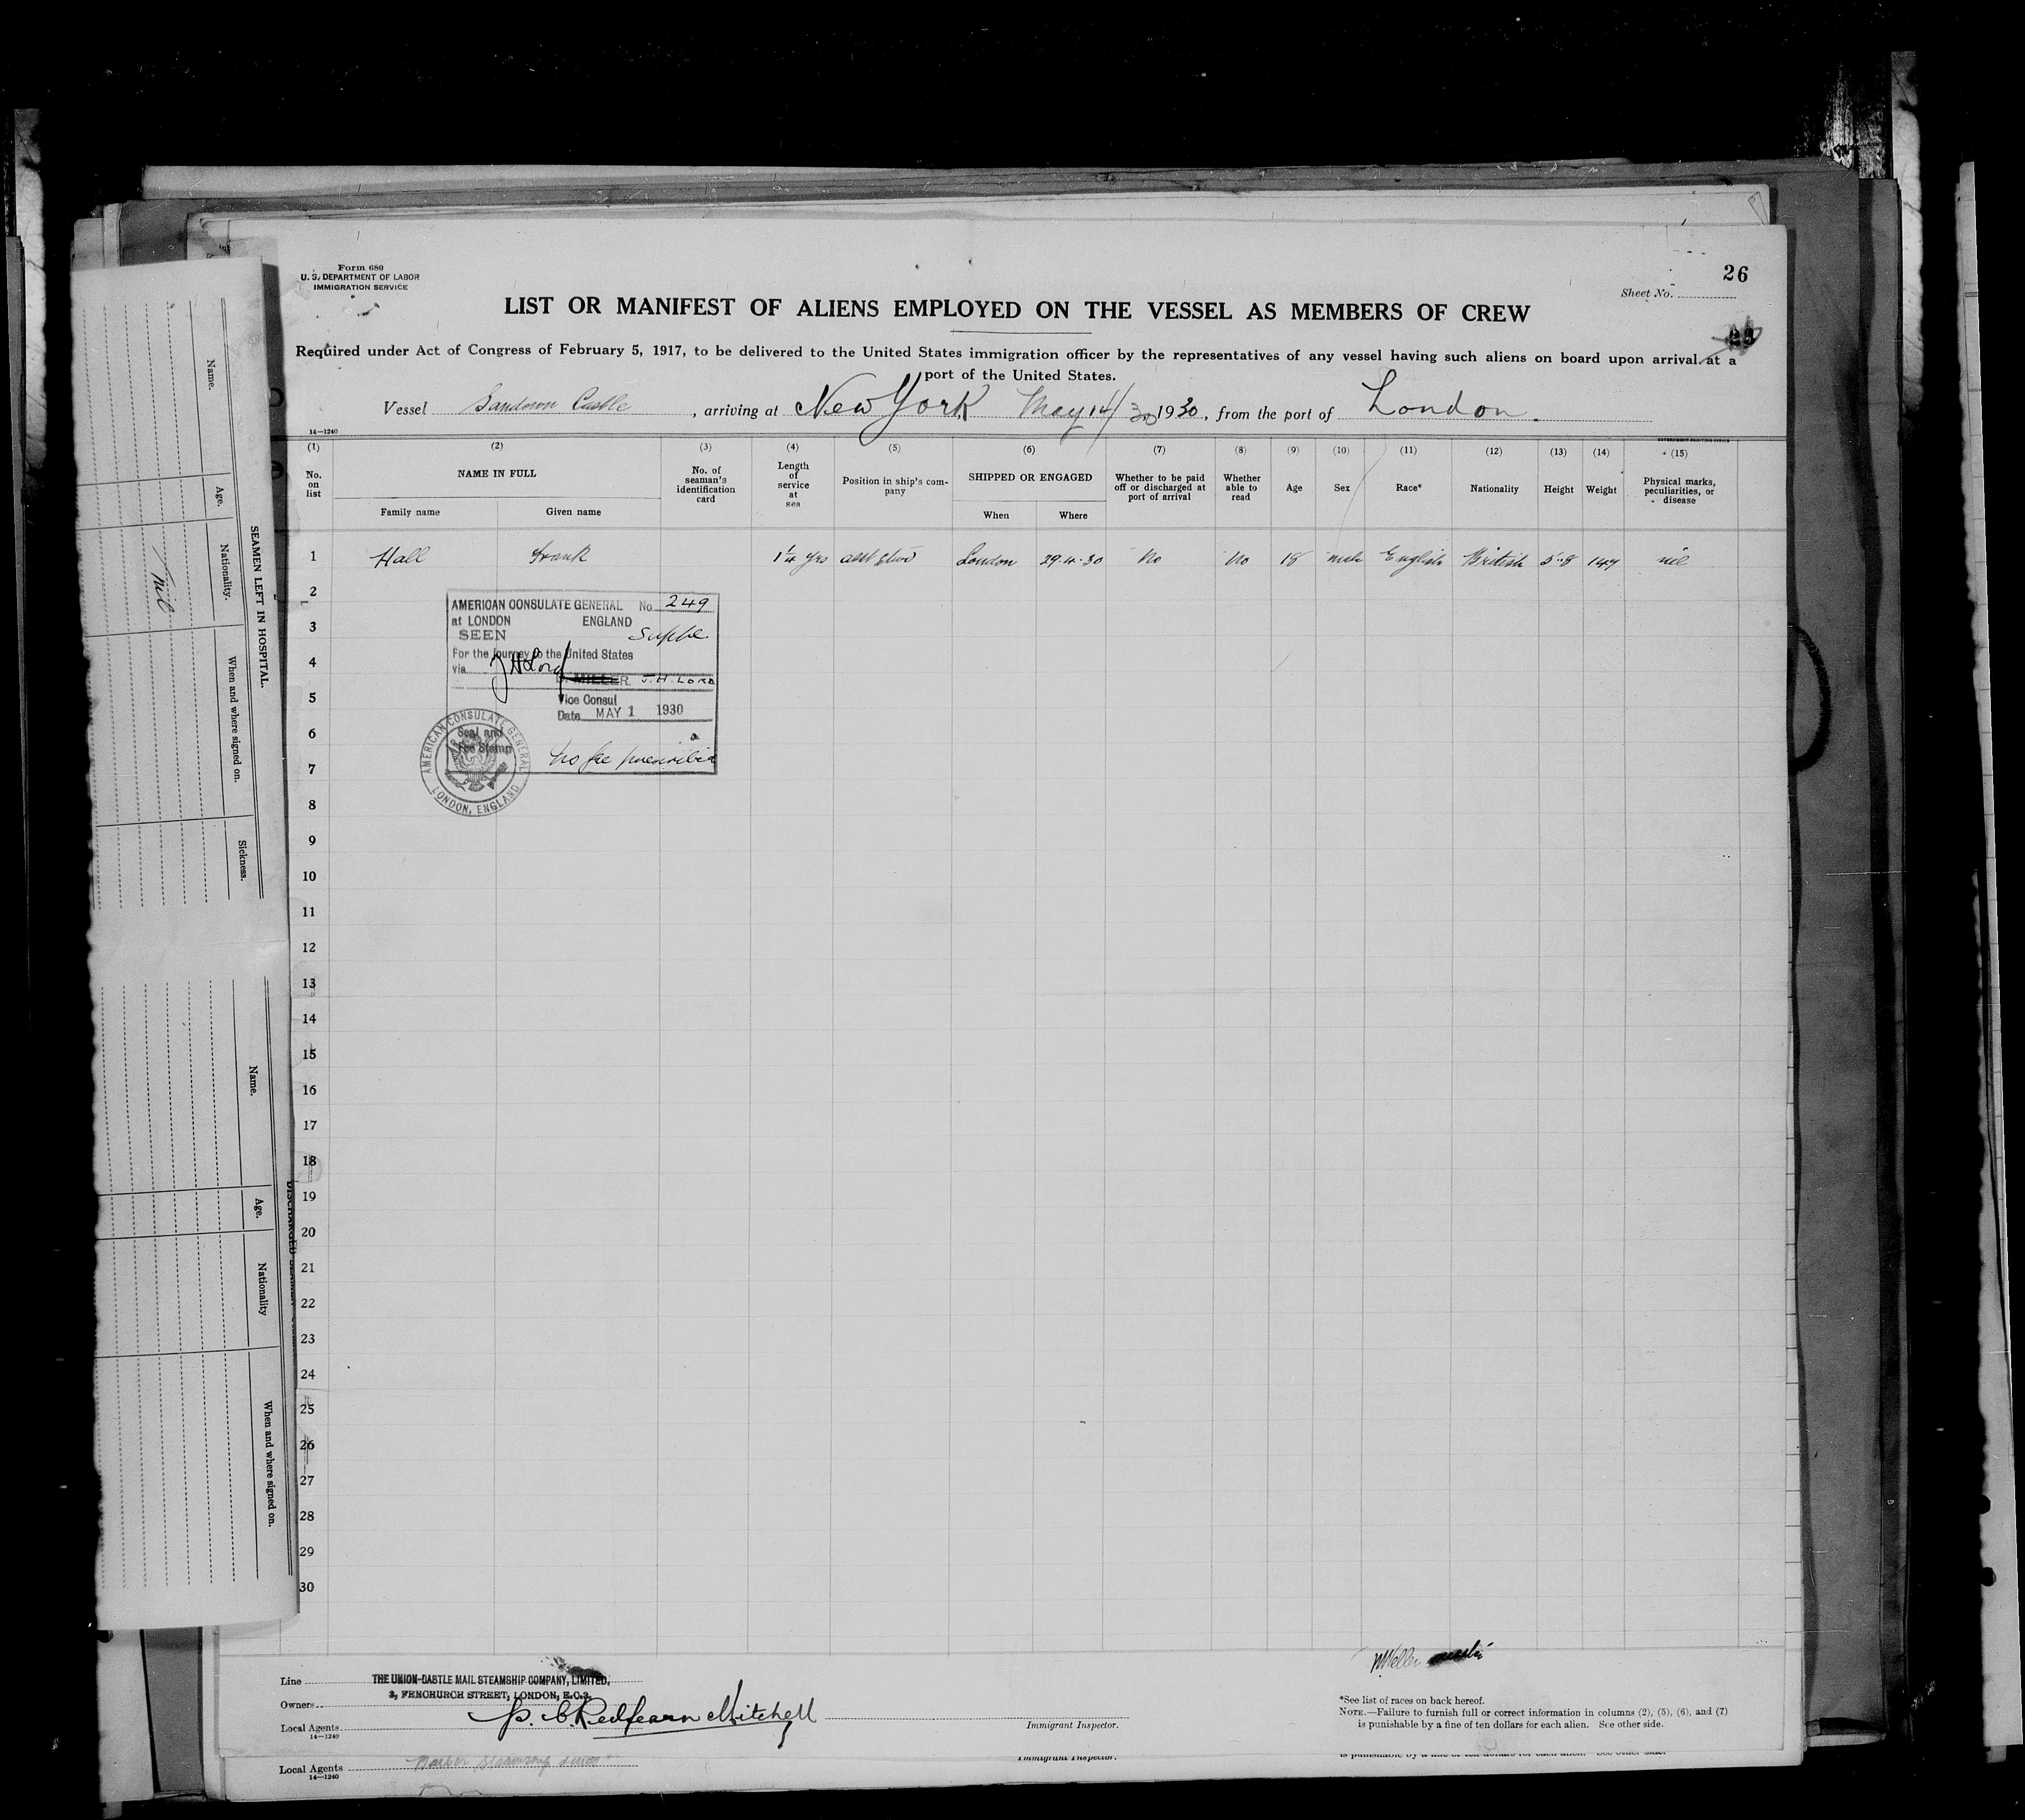 Form 680
U. S. DEPARTMENT OF LABOR
IMMIGRATION SERVICE
26
Sheet No.
LIST OR MANIFEST OF ALIENS EMPLOYED ON THE VESSEL AS MEMBERS OF CREW
Required under Act of Congress of February 5, 1917, to be delivered to the United States immigration officer by the representatives of any vessel having such aliens on board upon arrival at a
port of the United States.
Vessel Sandown Castle, arriving at New York May 14/30 1930, from the port of London.
14—1240
(1) (2) (3) (4) (5) (6) (7) (8) (9) (10) (11) (12) (13) (14) (15)
No. on list
NAME IN FULL
Family name
Given name
No. of seaman's identification card
Length of service at sea
Position in ship's company
SHIPPED OR ENGAGED
When
Where
Whether to be paid off or discharged at port of arrival
Whether able to read
Age
Sex
Race*
Nationality
Height
Weight
Physical marks, peculiarities, or disease
1 Hall Frank 1¼ yrs asst stwd London 29.4.30 No No 18 English British 5-8 147 nil
2
3
4
5
6
7
8
9
10
11
12
13
14
15
16
17
18
19
20
21
22
23
24
25
26
27
28
29
30
AMERICAN CONSULATE GENERAL No. 249
at LONDON ENGLAND
SEEN Supple
For the journey to the United States
via
J H Lord
MILLER J.H. LORD
Vice Consul
Date MAY 1 1930
Seal and
Fee Stamp
No fee prescribed
AMERICAN CONSULATE GENERAL
LONDON, ENGLAND
SEAMEN LEFT IN HOSPITAL.
Name.
Age.
Nationality.
When and where signed on.
Sickness.
nil
Name.
Age.
Nationality
When and where signed on.
Line THE UNION-CASTLE MAIL STEAMSHIP COMPANY, LIMITED.
3, FENCHURCH STREET, LONDON, E.C.3.
Owners
Local Agents
14—1240
P. C. Redfearn Mitchell
Immigrant Inspector.
*See list of races on back hereof.
NOTE.—Failure to furnish full or correct information in columns (2), (5), (6), and (7)
is punishable by a fine of ten dollars for each alien. See other side.
Local Agents
14—1240
Immigrant Inspector.